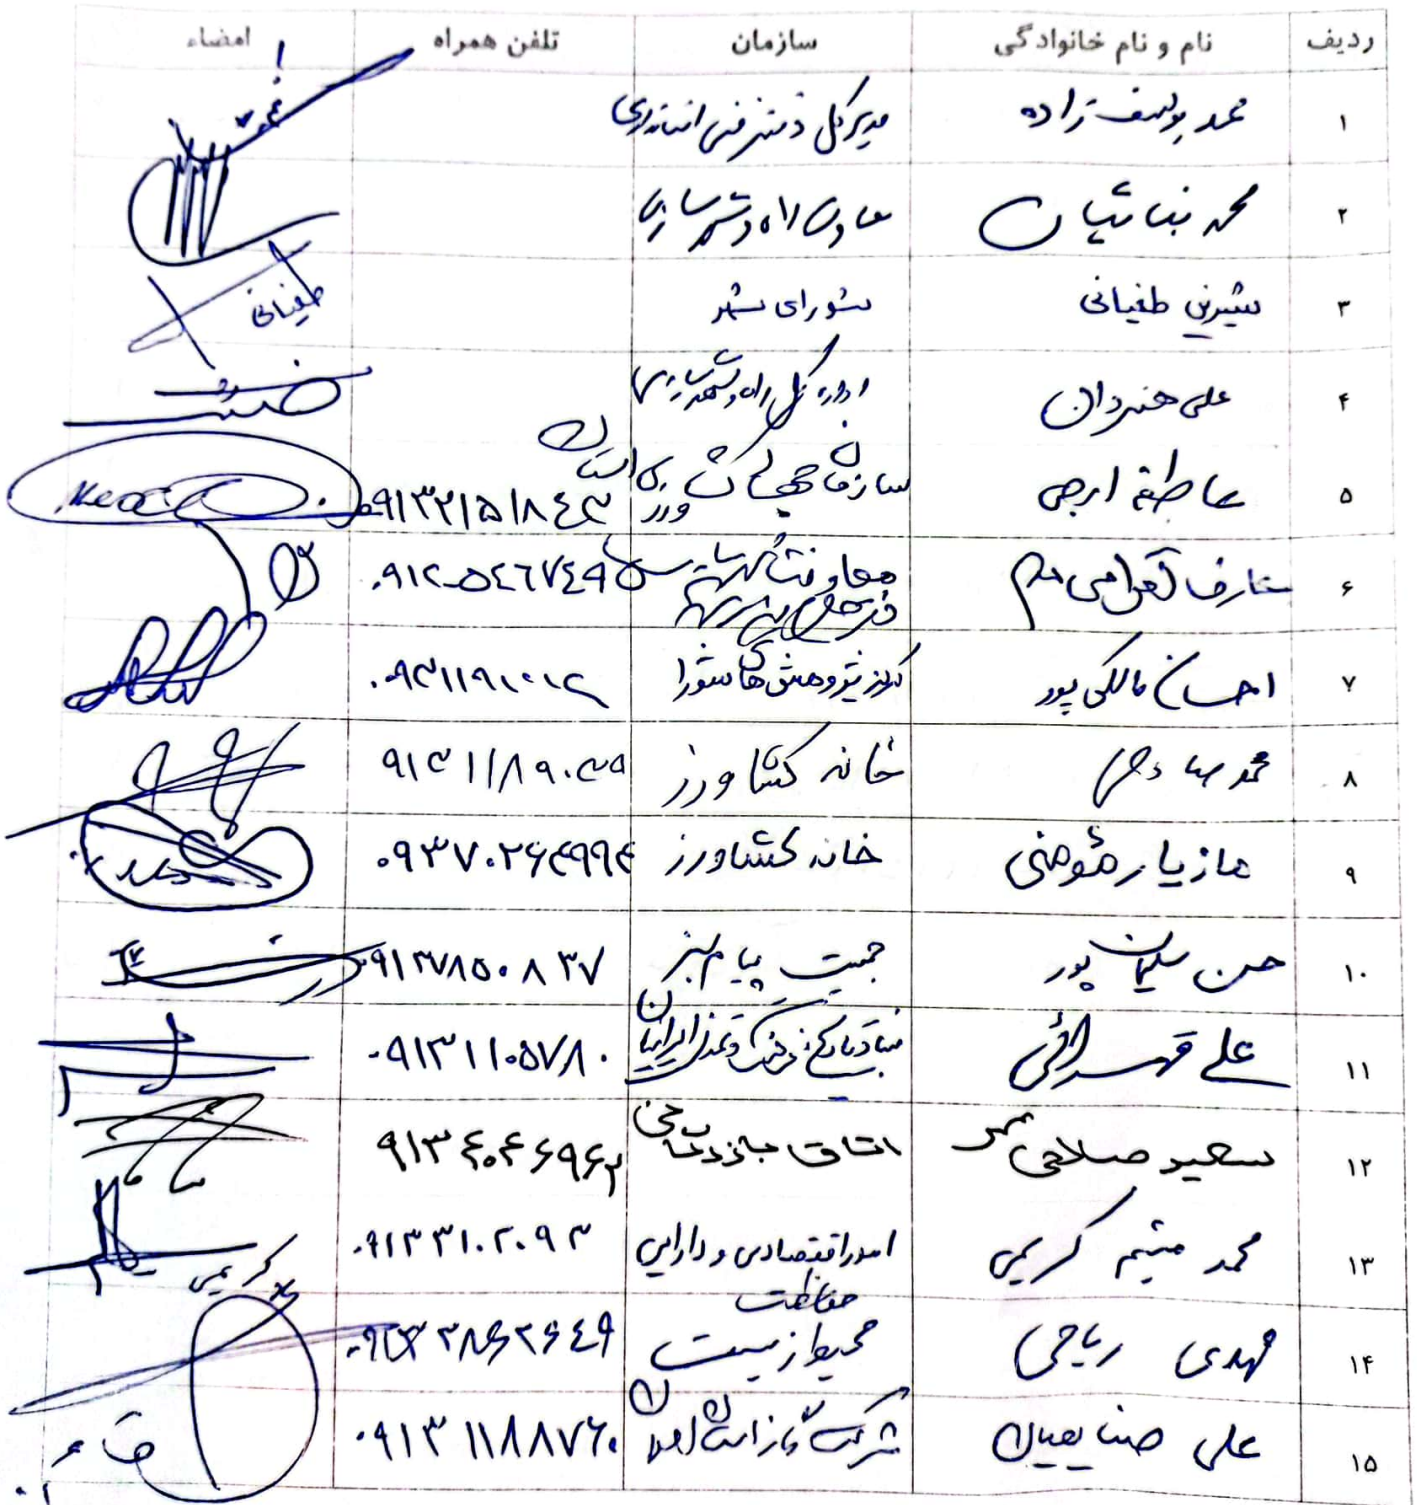 ردیف نام و نام خانوادگی سازمان تلفن همراه امضاء
۱ محمد یوسف زاده مدیرکل دفتر فنی استانداری
۲ محمد بنائیان معاون راه و شهرسازی
۳ شیرین طغیانی شورای شهر طغیانی
۴ علی هنردان اداره کل راه و شهرسازی
۵ عاطفه ایرجی سازمان جهاد کشاورزی استان ۰۹۱۳۲۱۵۱۸۴۳
۶ عارف معاونت ۰۹۱۲۰۵۴۶۷۴۹۵
۷ احسان مالکی پور مرکز پژوهش های شورا ۰۹۳۱۱۹۱۰۰۱۲
۸ محمد صادقی خانه کشاورز ۹۱۳۱۱۸۹۰۳۵
۹ مازیار مؤمنی خانه کشاورز ۰۹۳۷۰۲۶۳۹۹۴
۱۰ حسن سلیمان پور جمعیت پیام سبز ۰۹۱۳۷۸۵۰۸۳۷
۱۱ علی بنیاد فرهنگ و تمدن ایرانیان ۰۹۱۳۱۱۰۵۷۸۰
۱۲ سعید صلاحی اتاق بازرگانی ۹۱۳۴۰۴۶۹۶۲
۱۳ محمد میثم کریمی امور اقتصادی و دارایی ۰۹۱۳۳۱۰۲۰۹۳ کریمی
۱۴ مهدی ریاحی حفاظت محیط زیست ۰۹۱۳۳۸۶۲۶۴۹
۱۵ علی صنایعیان شرکت گاز استان اصفهان ۰۹۱۳۱۱۸۸۷۶۰